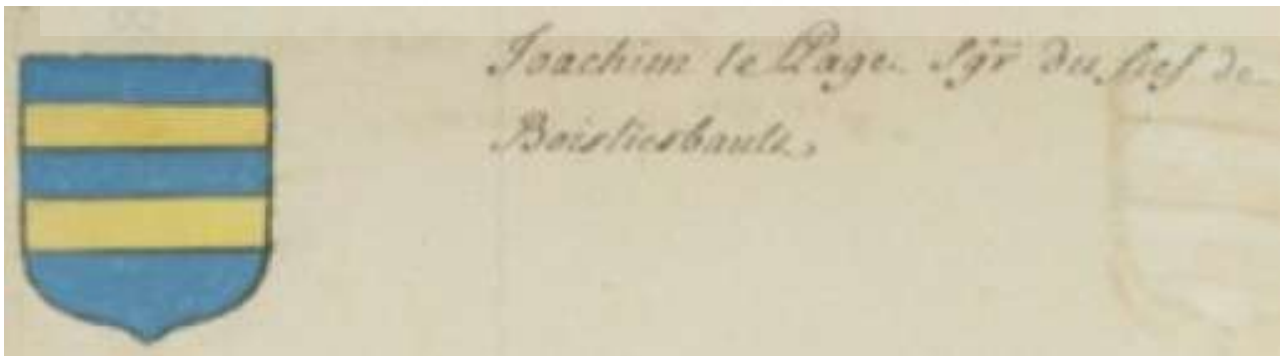 Joachim le Page. Sgr du fief de
Boisliesbault,